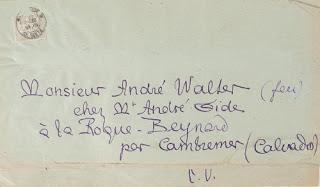 Monsieur André Walter (feu)
chez Mr André Gide
à la Roque-Beynard
par Cambremer (Calvados)
C. V.